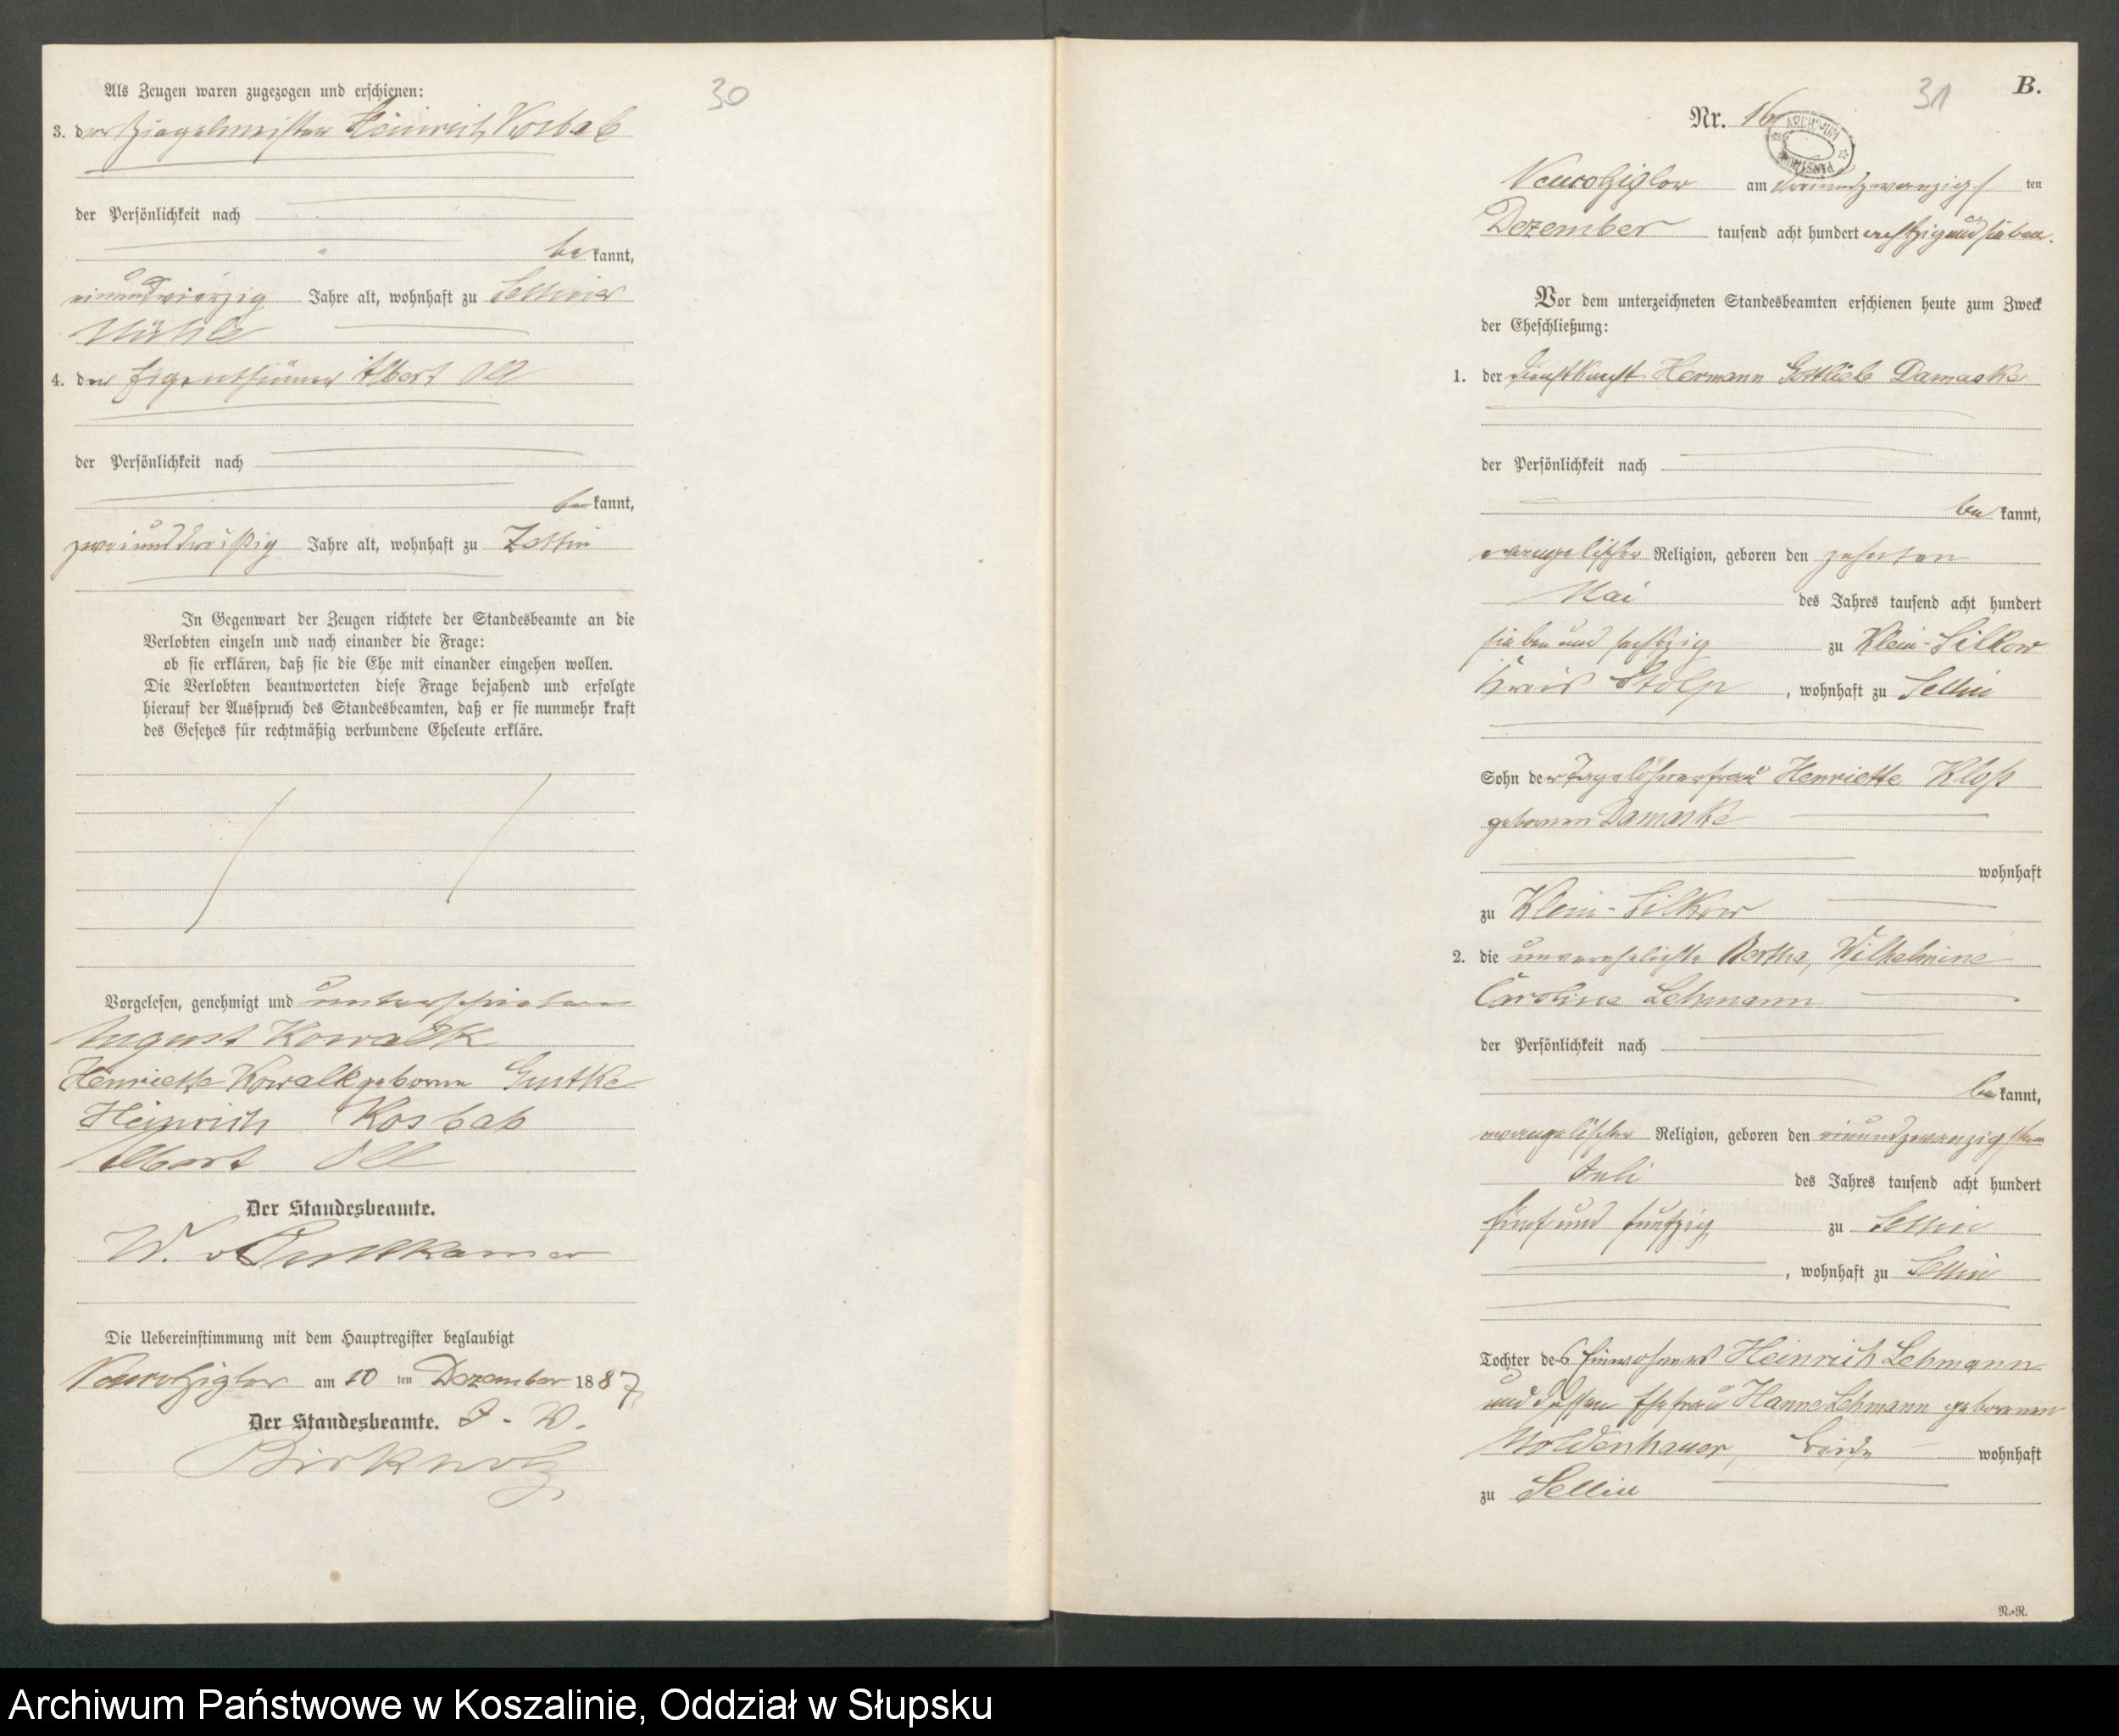 30
Als Zeugen waren zugezogen und erschienen:
3. der Ziegelmeister Heinrich Kosbab
der Persönlichkeit nach
bekannt,
einundvierzig Jahre alt, wohnhaft zu Selliner
Mühle
4. der Eigenthümer Albert Oll
der Persönlichkeit nach
bekannt,
zweiunddreißig Jahre alt, wohnhaft zu Zettin
In Gegenwart der Zeugen richtete der Standesbeamte an die
Verlobten einzeln und nach einander die Frage:
ob sie erklären, daß sie die Ehe mit einander eingehen wollen.
Die Verlobten beantworteten diese Frage bejahend und erfolgte
hierauf der Ausspruch des Standesbeamten, daß er sie nunmehr kraft
des Gesetzes für rechtmäßig verbundene Eheleute erkläre.
Vorgelesen, genehmigt und unterschrieben
August Kowalk
Henriette Kowalk geborne Gustke
Heinrich Kosbab
Albert Oll
Der Standesbeamte.
W. v Puttkamer
Die Uebereinstimmung mit dem Hauptregister beglaubigt
am 10 ten Dezember 1887
Der Standesbeamte. I. V.
Birkholz
31
B.
Nr. 16
am dreiundzwanzigsten
Dezember tausend acht hundert achtzig und sieben.
Vor dem unterzeichneten Standesbeamten erschienen heute zum Zweck
der Eheschließung:
1. der Dienstknecht Hermann Gottlieb Damaske
der Persönlichkeit nach
bekannt,
evangelischer Religion, geboren den zehnten
Mai des Jahres tausend acht hundert
sieben und sechszig zu Klein-Silkow
Kreis Stolp, wohnhaft zu Sellin
Sohn der Tagelöhnerfrau Henriette Kloß
geborenen Damaske
wohnhaft
zu Klein-Silkow
2. die unverehelichte Bertha, Wilhelmine
Caroline Lehmann
der Persönlichkeit nach
bekannt,
evangelischer Religion, geboren den einundzwanzigsten
Juli des Jahres tausend acht hundert
fünf und funfzig zu Sellin
, wohnhaft zu Sellin
Tochter des Einwohners Heinrich Lehmann
und dessen Ehefrau Hanne Lehmann geborenen
Moldenhauer, beide wohnhaft
zu Sellin
N.-N.
Archiwum Państwowe w Koszalinie, Oddział w Słupsku